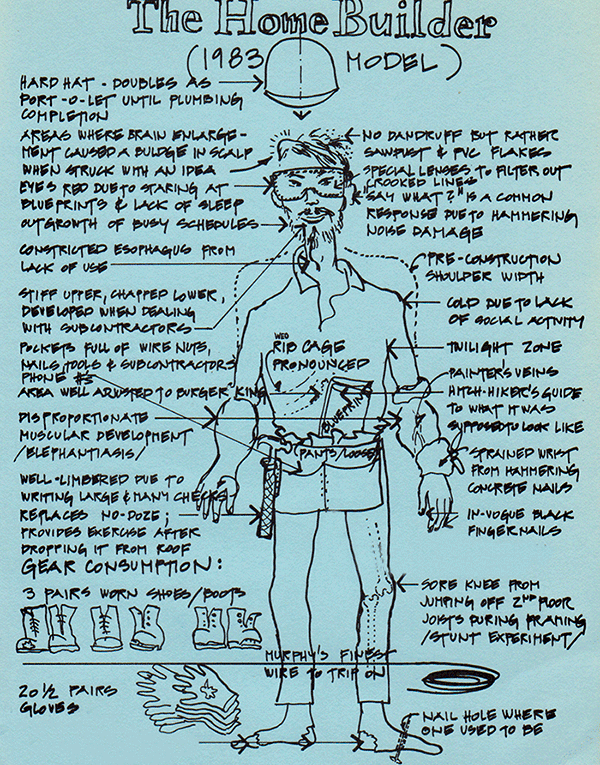 The Home Builder
(1983 MODEL)
HARD HAT - DOUBLES AS
PORT-O-LET UNTIL PLUMBING
COMPLETION
AREAS WHERE BRAIN ENLARGE-
MENT CAUSED A BULDGE IN SCALP
WHEN STRUCK WITH AN IDEA
EYES RED DUE TO STARING AT
BLUEPRINTS & LACK OF SLEEP
OUTGROWTH OF BUSY SCHEDULES
CONSTRICTED ESOPHAGUS FROM
LACK OF USE
STIFF UPPER, CHAPPED LOWER,
DEVELOPED WHEN DEALING
WITH SUBCONTRACTORS
POCKETS FULL OF WIRE NUTS,
NAILS, TOOLS & SUBCONTRACTORS
PHONE #S
AREA WELL ADJUSTED TO BURGER KING
DISPROPORTIONATE
MUSCULAR DEVELOPMENT
/ELEPHANTIASIS/
WELL-LIMBERED DUE TO
WRITING LARGE & MANY CHECKS
REPLACES NO-DOZE;
PROVIDES EXERCISE AFTER
DROPPING IT FROM ROOF
GEAR CONSUMPTION:
3 PAIRS WORN SHOES/BOOTS
20 1/2 PAIRS
GLOVES
NO DANDRUFF BUT RATHER
SAWDUST & PVC FLAKES
SPECIAL LENSES TO FILTER OUT
CROOKED LINES
"SAY WHAT?" IS A COMMON
RESPONSE DUE TO HAMMERING
NOISE DAMAGE
PRE-CONSTRUCTION
SHOULDER WIDTH
COLD DUE TO LACK
OF SOCIAL ACTIVITY
RIB CAGE
PRONOUNCED
TWILIGHT ZONE
PAINTER'S VEINS
HITCH-HIKER'S GUIDE
TO WHAT IT WAS
SUPPOSED TO LOOK LIKE
BLUEPRINT
(PANTS/LOOSE)
SPRAINED WRIST
FROM HAMMERING
CONCRETE NAILS
IN-VOGUE BLACK
FINGERNAILS
SORE KNEE FROM
JUMPING OFF 2ND FLOOR
JOISTS DURING FRAMING
/STUNT EXPERIMENT/
MURPHY'S FINEST
WIRE TO TRIP ON
NAIL HOLE WHERE
ONE USED TO BE